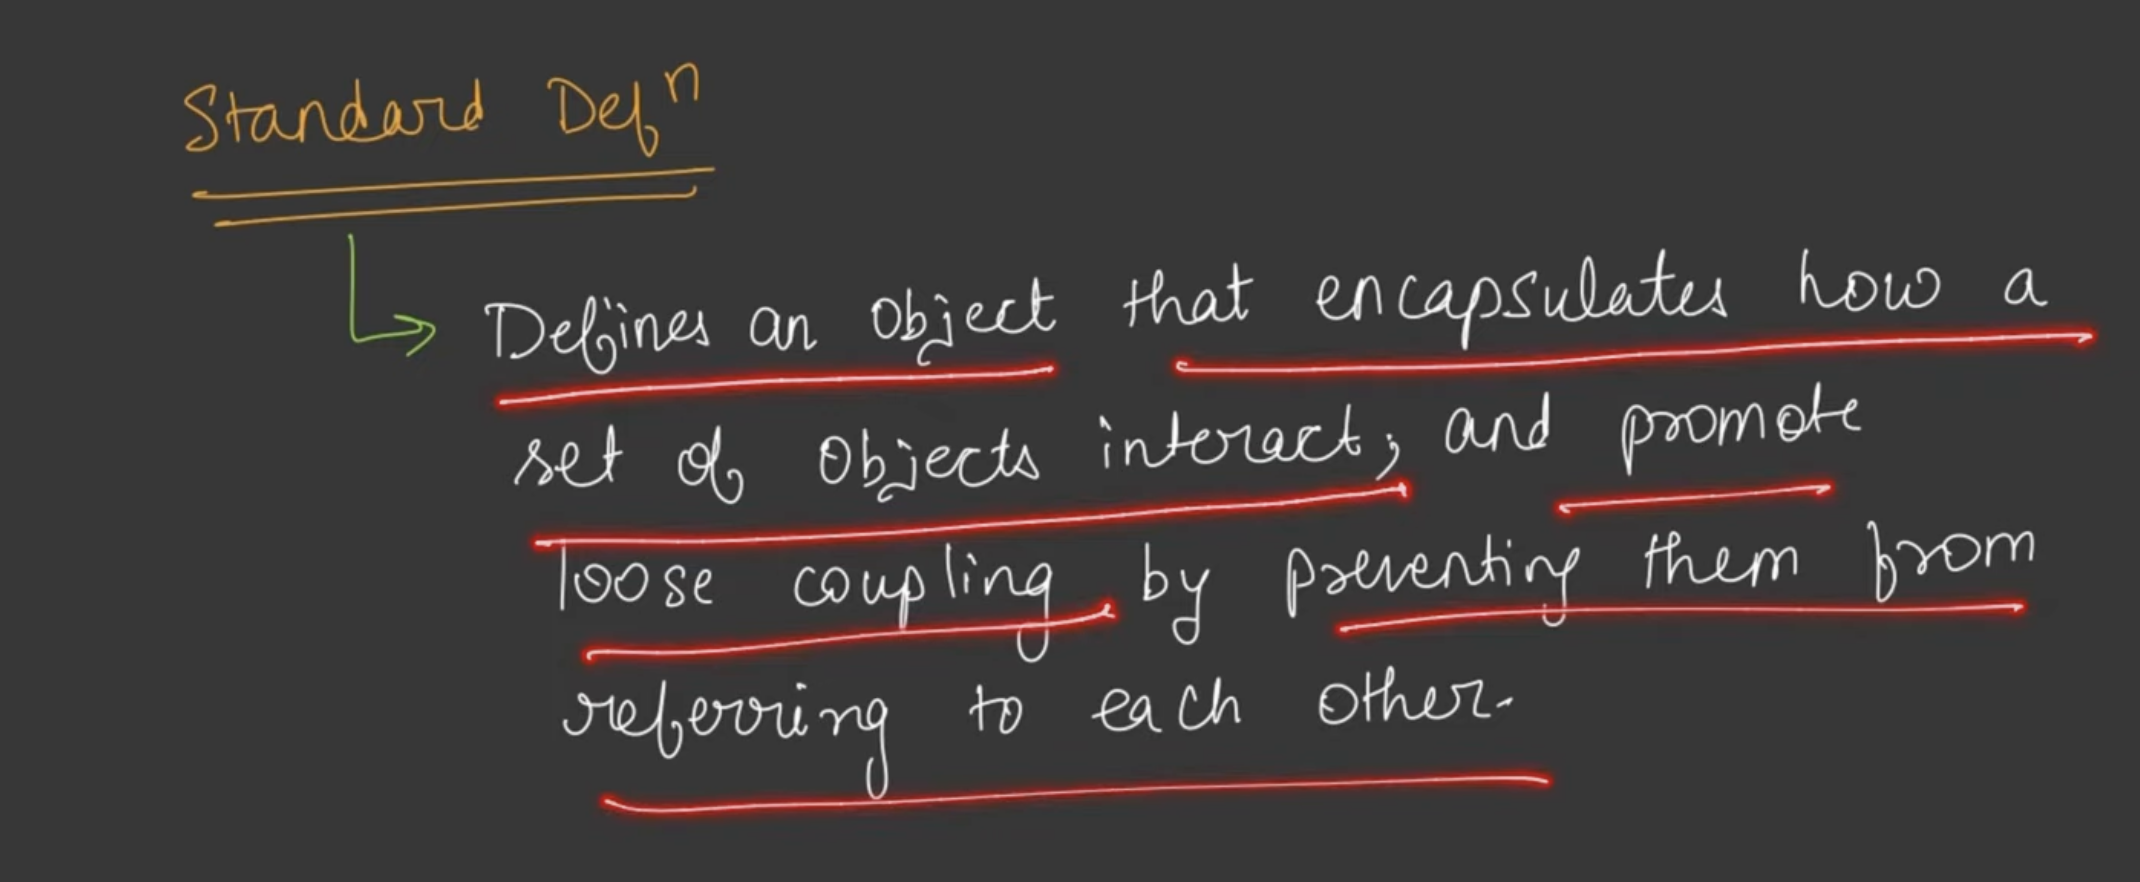 Standard Defⁿ
Defines an object that encapsulates how a
set of objects interact, and promote
loose coupling by preventing them from
referring to each other.